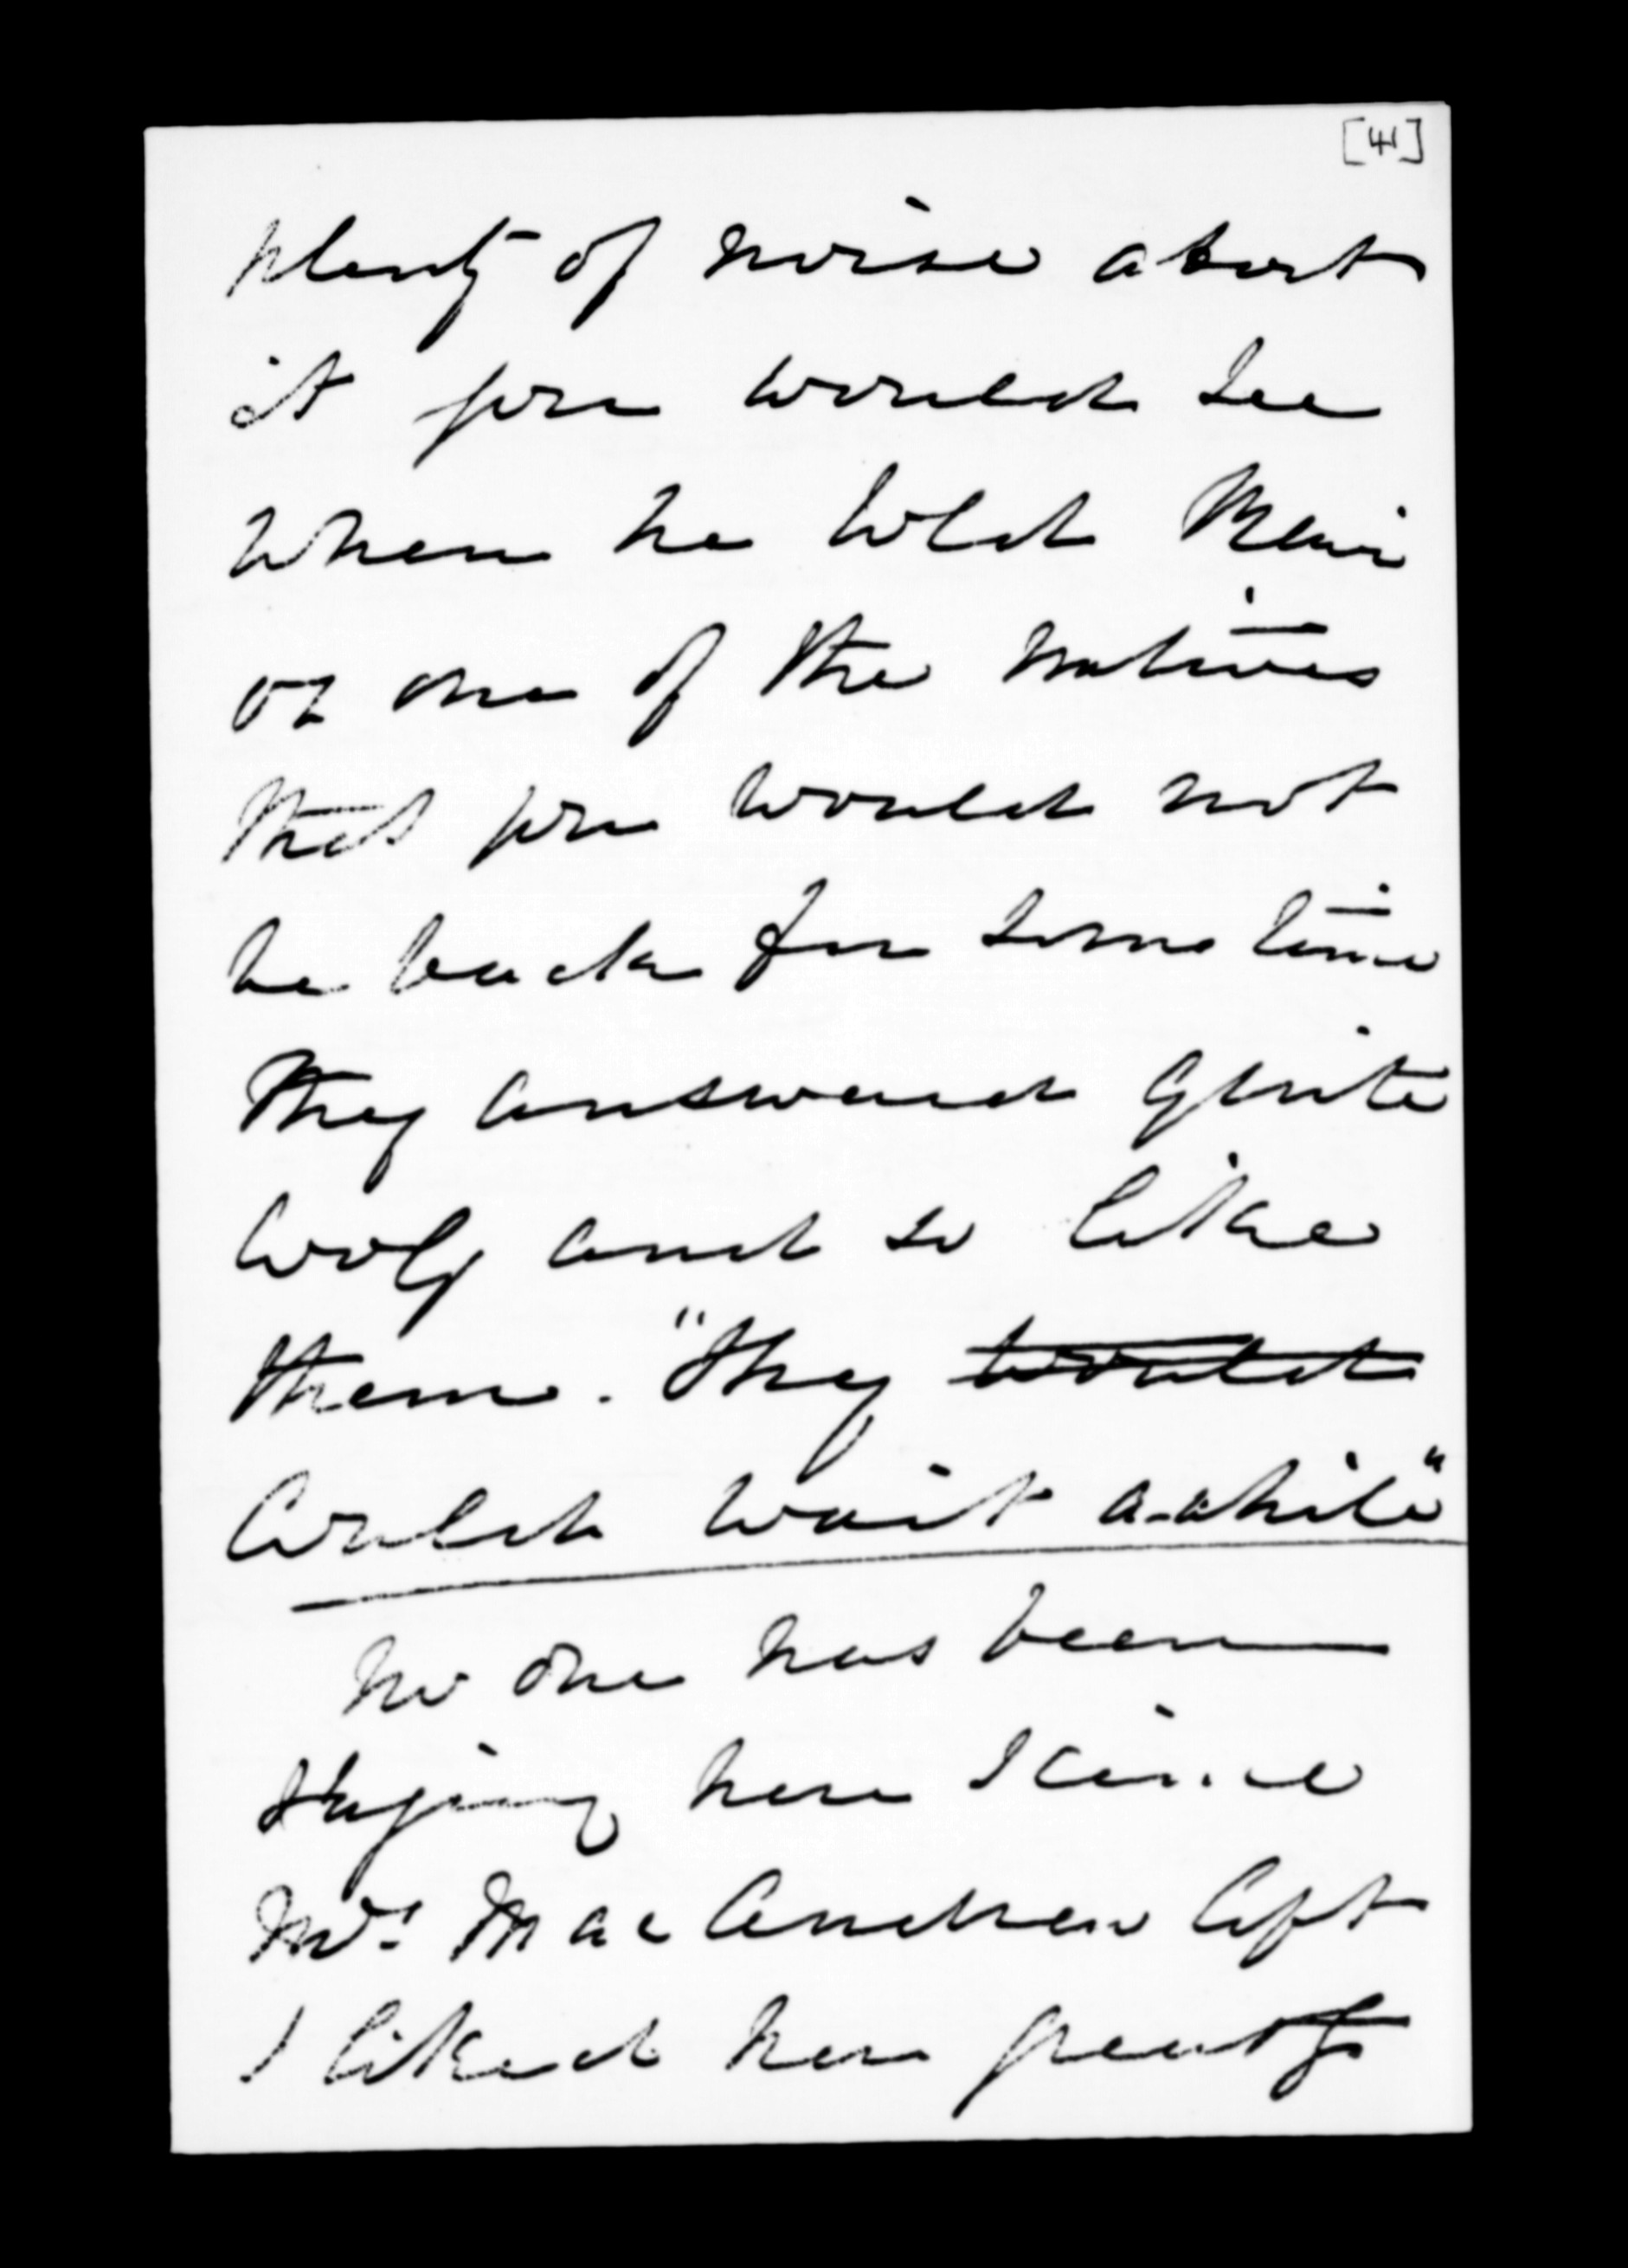 [4]
plenty of noise about
it you would see
when he told
or one of the natives
that you would not
be back for some time
they answered quite
cooly and so like
them. "They ~~would~~
could wait a-while"
No one has been
staying here since
Mrs MacAndrew left
I liked her greatly